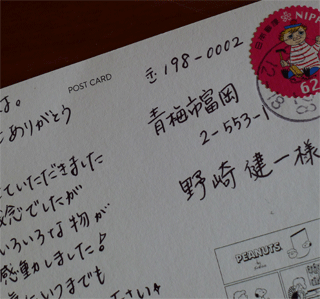 POST CARD
〒198-0002
青梅市富岡
2-553-1
野崎健一様
は。
ありがとう
ていただきました
念でしたが
いろいろな物が
感動しました!
いつまでも
さい
NIPPON
62
PEANUTS